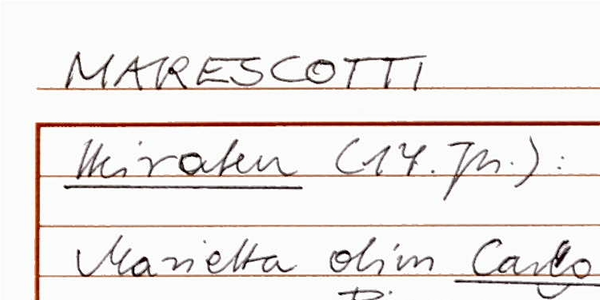 MARESCOTTI
Heiraten (17. Jh.):
Marietta olim Carlo